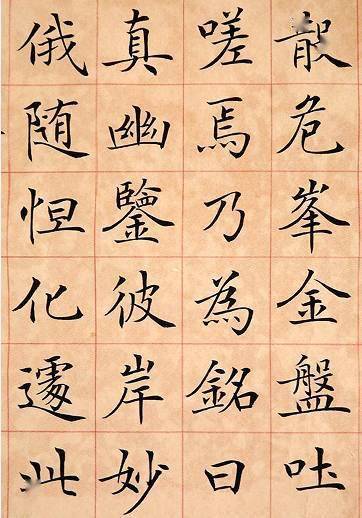 散危峯金盤吐
嗟焉乃為銘曰
真幽鑒彼岸妙
俄随怛化遽此